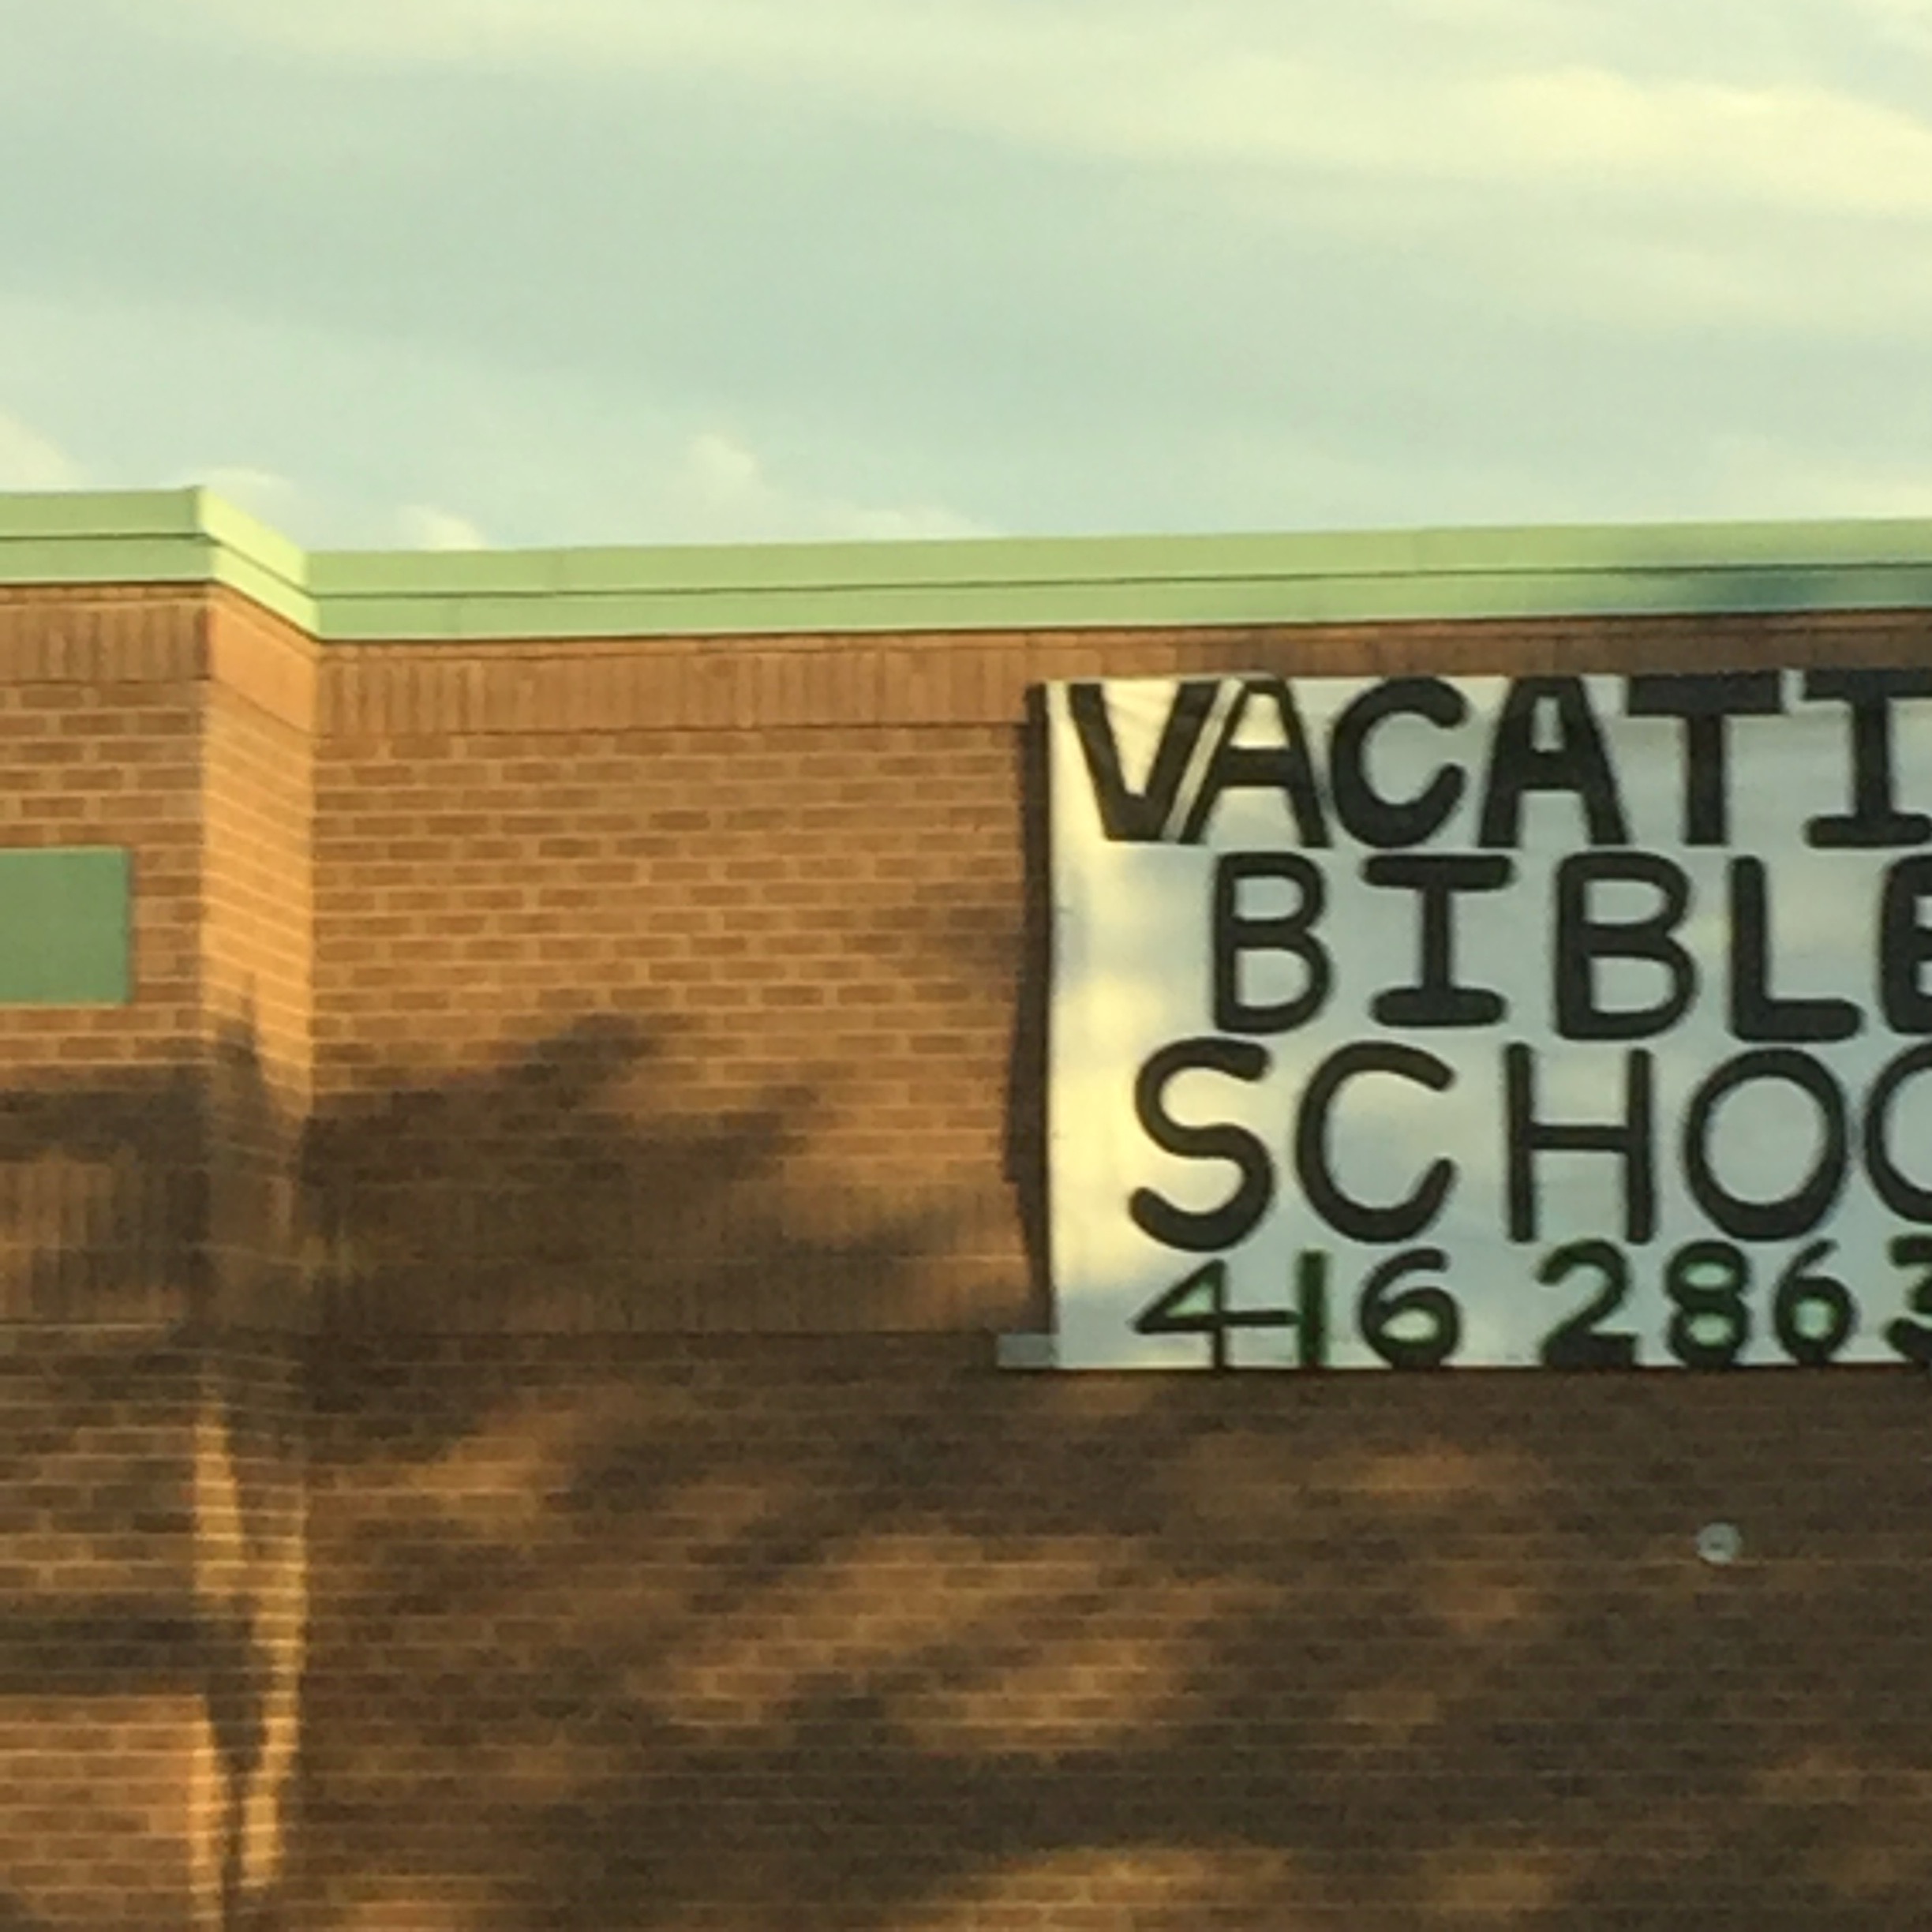 VACATI
BIBLE
SCHOO
416 2863